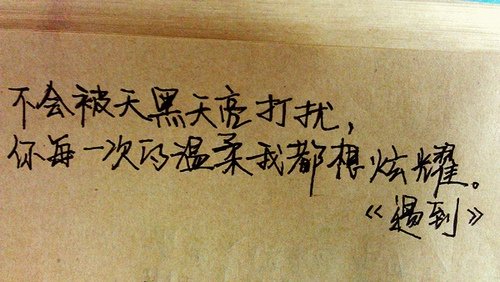 不会被天黑天亮打扰，
你每一次的温柔我都想炫耀。
《遇到》